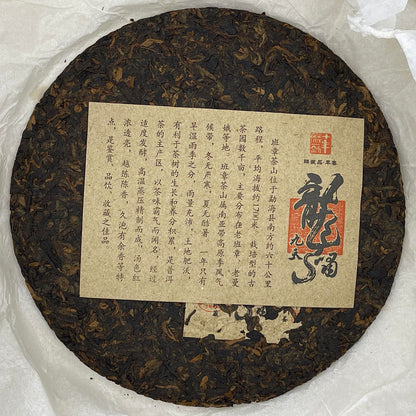 班章茶山位于勐海县南方约六十公里
路程，平均海拔约1700米，栽培型的古
茶园数千亩，主要分布在老班章、老曼
娥等地，班章茶山属南亚带高原季风气
候带，冬无严寒，夏无酷暑，一年只有
旱湿雨季之分，雨量充沛，土地肥沃，
有利于茶树的生长和养分积累，是普洱
茶的主产区，以茶味霸气而闻名，经过
适度发酵，高温蒸压精制而成，汤色红
浓透亮，越陈陈香，久泡有余香等特
点，是鉴赏、品饮、收藏之佳品
龍
九五